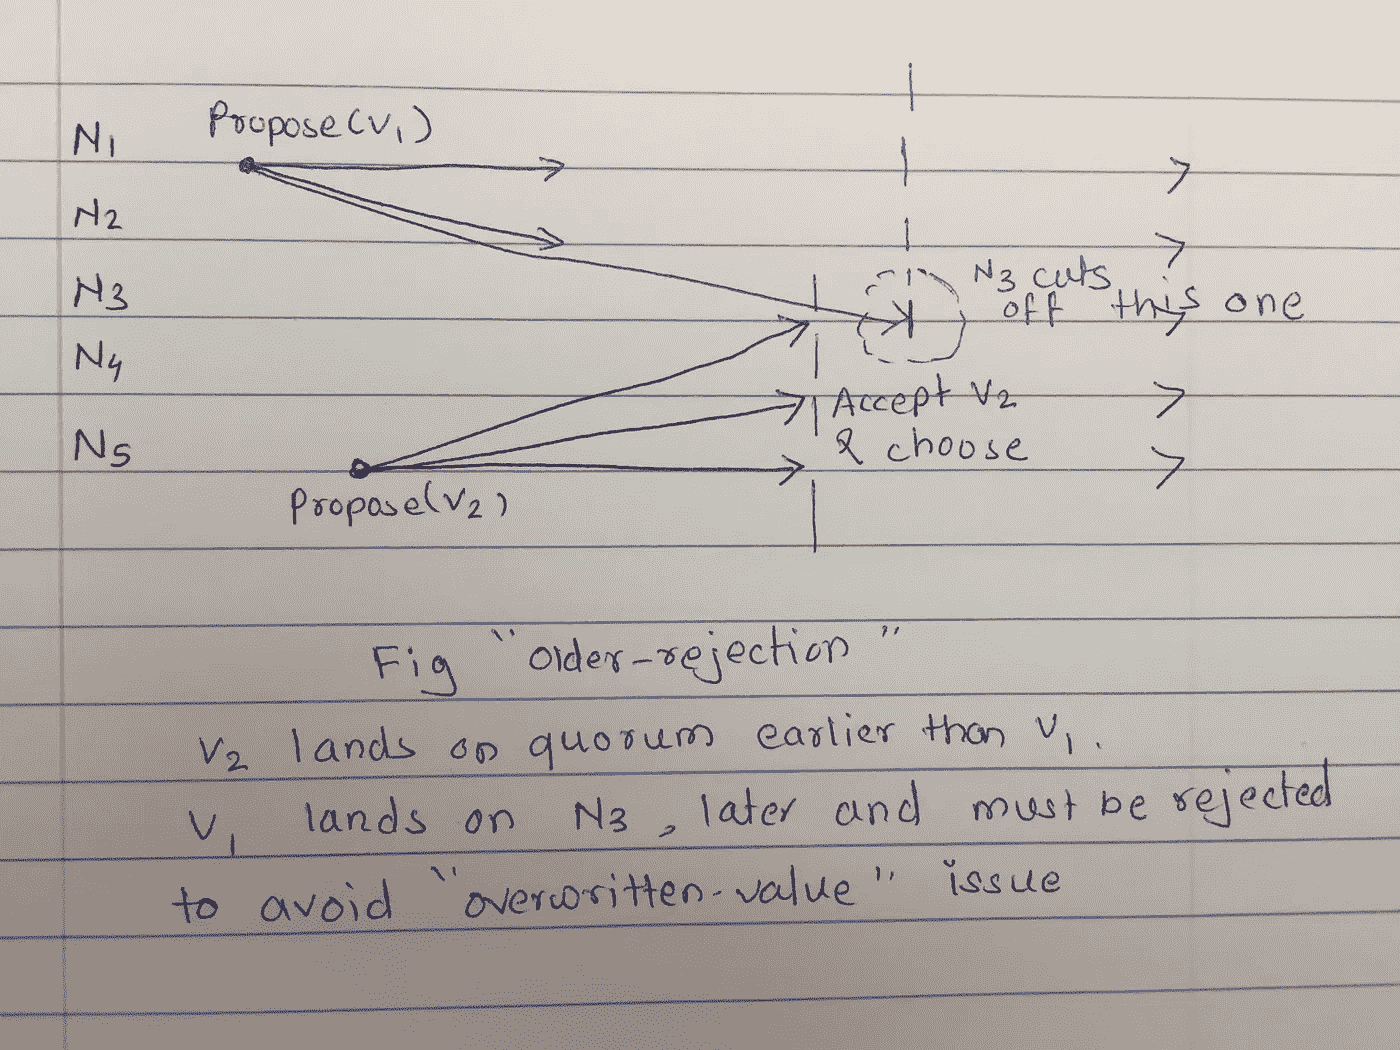 Propose(V1)
N1
N2
N3
N3 cuts
off this one
N4
Accept V2
& choose
N5
Propose(V2)
Fig "Older-rejection"
V2 lands on quorum earlier than V1.
V1 lands on N3, later and must be rejected
to avoid "overwritten-value" issue